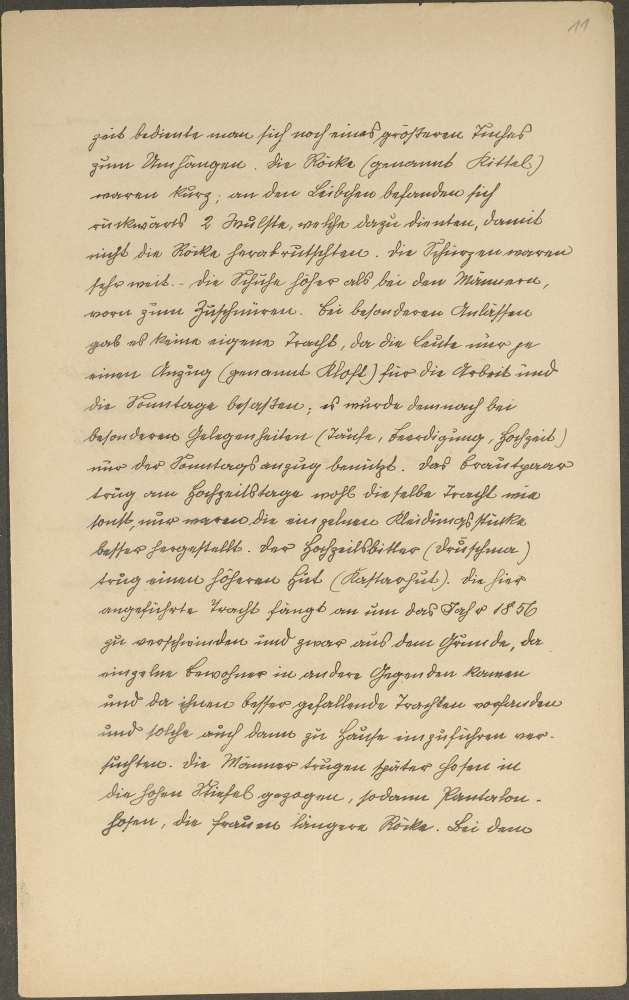 11
zeit bediente man sich noch eines größeren Tuches
zum Umhängen. Die Röcke (genannt Kittel)
waren kurz; an den Leibchen befanden sich
rückwärts 2 Wülste, welche dazu dienten, damit
nicht die Röcke herabrutschten. Die Schürzen waren
sehr weit. - Die Schuhe höher als bei den Männern,
vorn zum Zuschnüren. Bei besonderen Anlässen
gab es keine eigene Tracht, da die Leute nur je
einen Anzug (genannt Kloft) für die Arbeit und
die Sonntage besaßen; es wurde demnach bei
besonderen Gelegenheiten (Taufe, Beerdigung, Hochzeit)
nur der Sonntagsanzug benützt. Das Brautpaar
trug am Hochzeitstage wohl dieselbe Tracht wie
sonst, nur waren die einzelnen Kleidungsstücke
besser hergestellt. Der Hochzeitsbitter (Druschma)
trug einen höheren Hut (Kastarhut). Die hier
angeführte Tracht fängt an um das Jahr 1856
zu verschwinden und zwar aus dem Grunde, da
einzelne Bewohner in andere Gegenden kamen
und da ihnen besser gefallende Trachten vorfanden
und solche auch dann zu Hause einzuführen ver-
suchten. Die Männer trugen später Hosen in
die hohen Stiefel gezogen, sodann Pantalon-
hosen, die Frauen längere Röcke. Bei dem